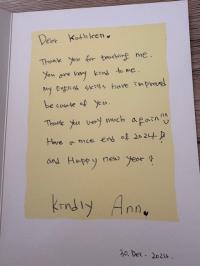 Dear Kathleen.
Thank you for teaching me.
You are very kind to me.
My English skills have improved
because of you.
Thank you very much again!!!
Have a nice end of 2024!
and Happy new year!
Kindly Ann.
30. Dec. 2024.